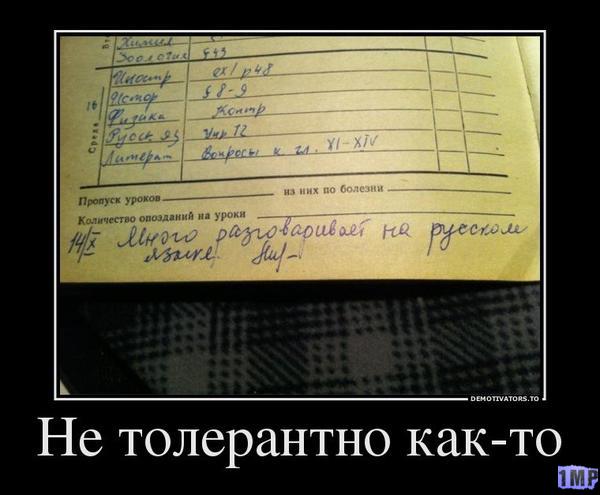 Химия
Зоология §43
Иностр ex1 p48
Истор § 8-9
16
Среда
Физика Контр
Русск яз Упр 12
Литерат Вопросы к гл. XI-XIV
Пропуск уроков из них по болезни
Количество опозданий на уроки
14/X Много разговаривает на русском
языке.
DEMOTIVATORS.TO
Не толерантно как-то
1MP